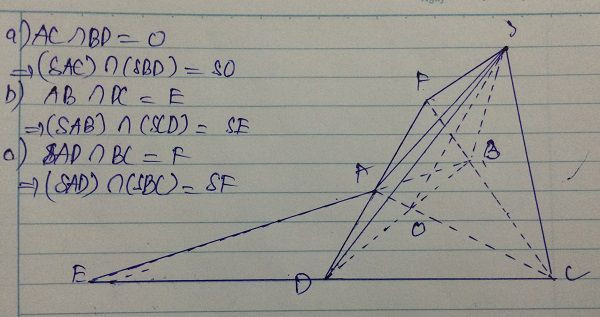 a) AC ∩ BD = O
⇒ (SAC) ∩ (SBD) = SO
b) AB ∩ DC = E
⇒ (SAB) ∩ (SCD) = SE
c) AD ∩ BC = F
⇒ (SAD) ∩ (SBC) = SF
S
F
B
A
O
E
D
C